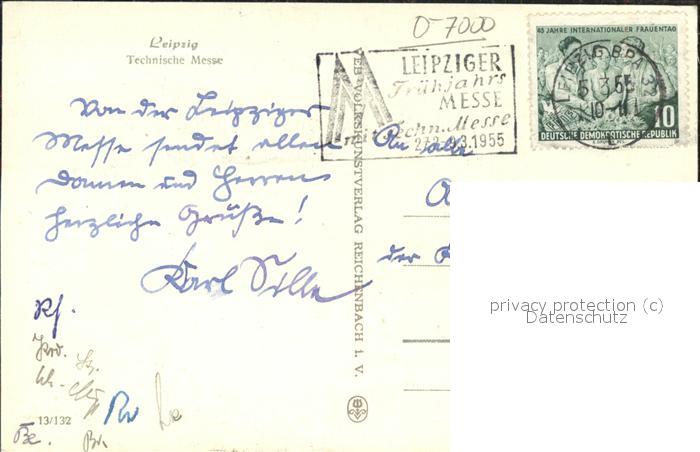 D-7000
Leipzig
Technische Messe
LEIPZIGER
Frühjahrs
MESSE
Techn. Messe
1955
45 JAHRE INTERNATIONALER FRAUENTAG
10
DEUTSCHE DEMOKRATISCHE REPUBLIK
Von der Leipziger
Messe sendet allen
Damen und Herren
herzliche Grüße!
Karl Sille
An alle
der
VEB VOLKSKUNSTVERLAG REICHENBACH i. V.
privacy protection (c)
Datenschutz
13/132